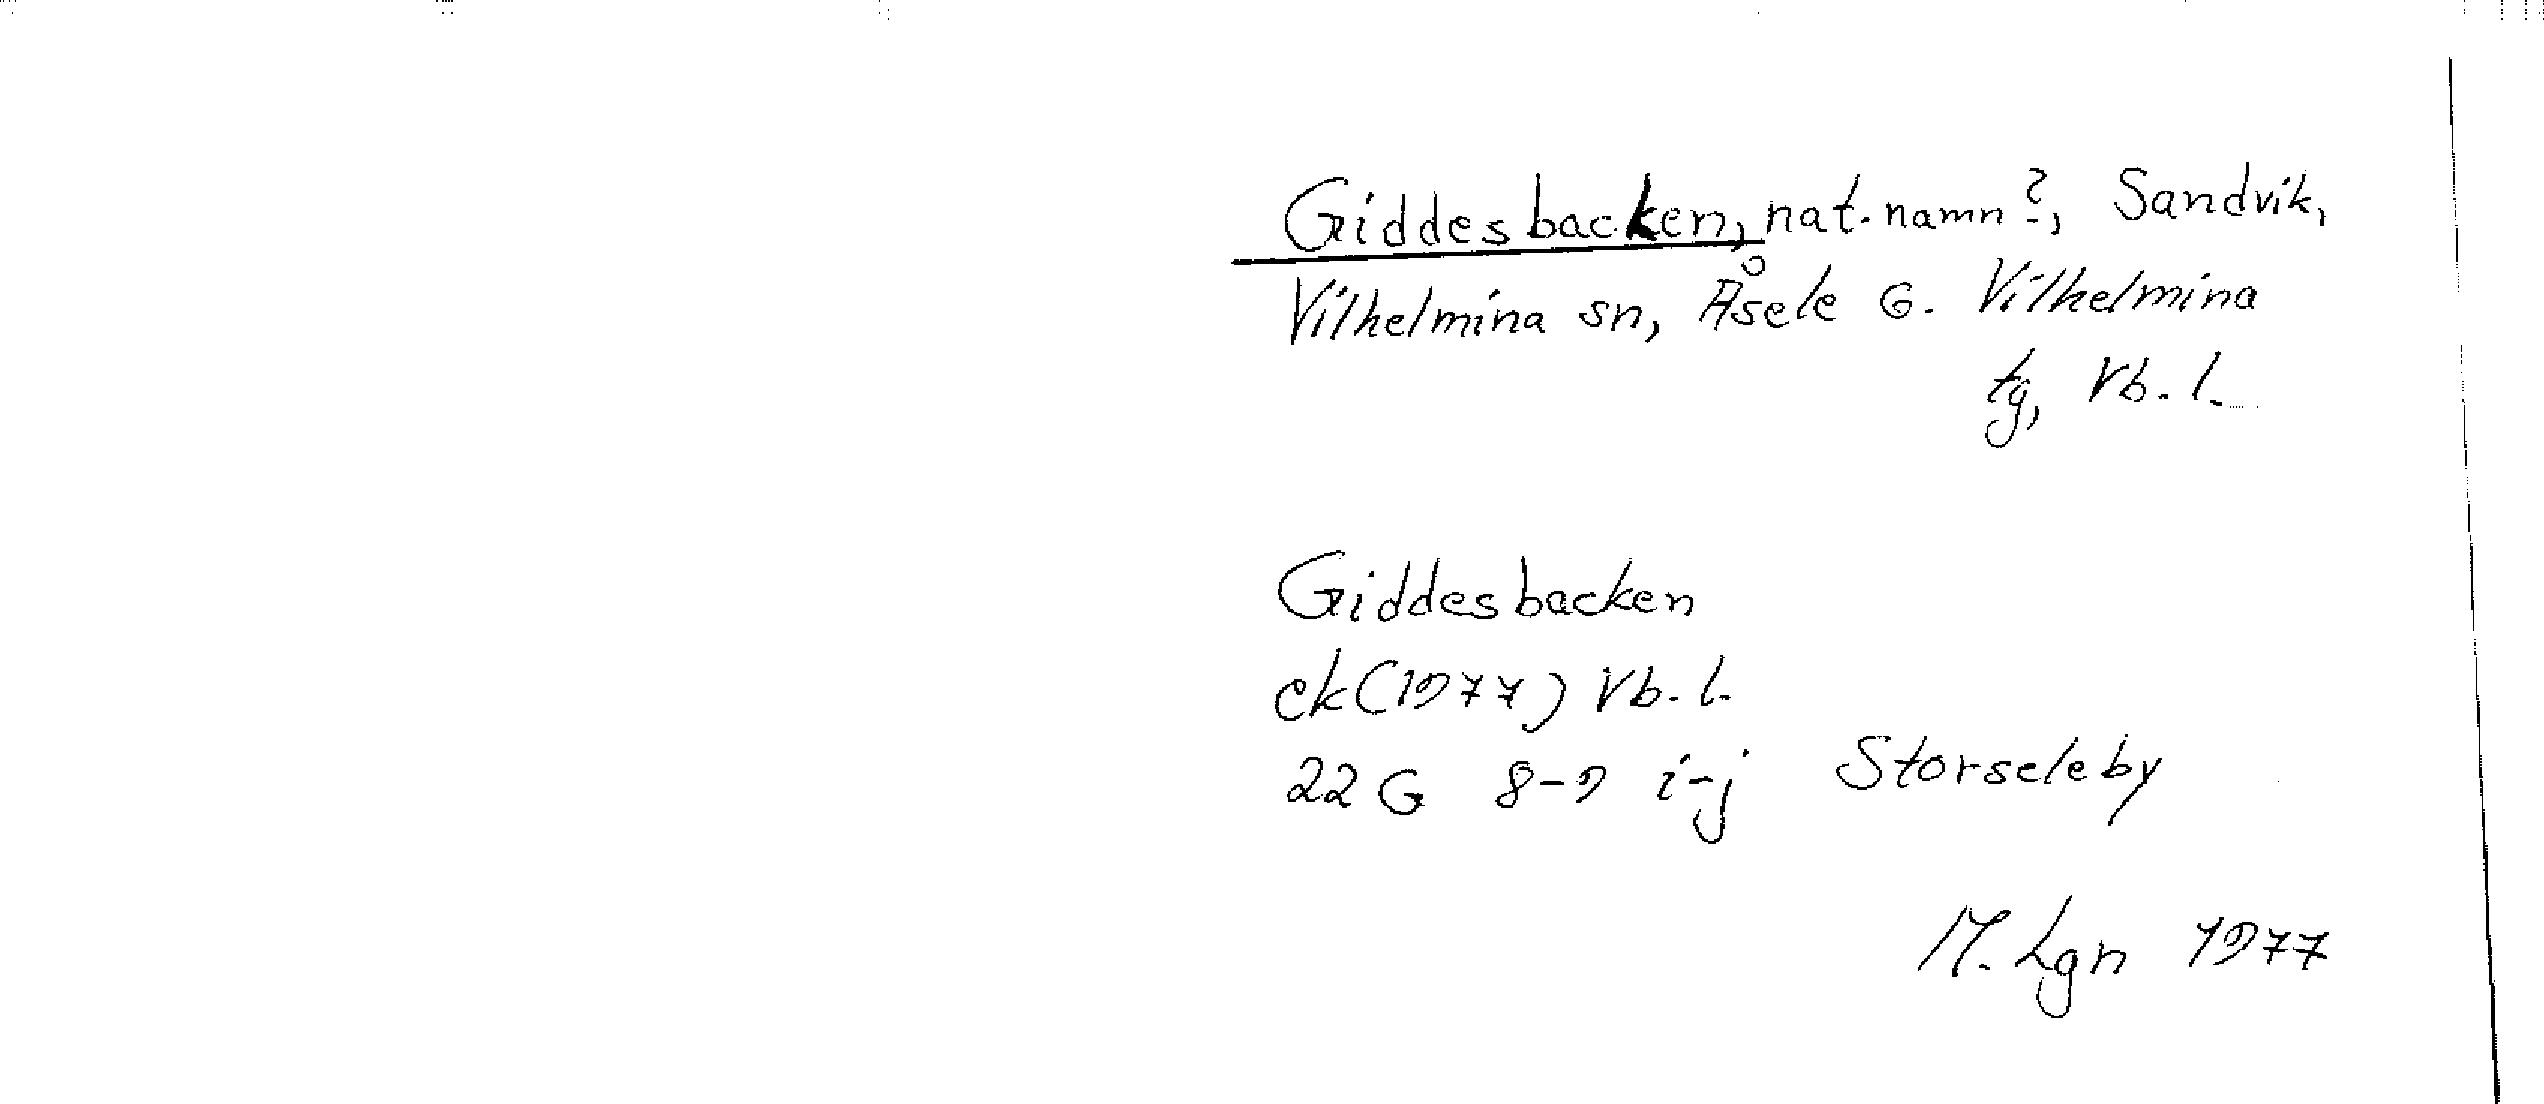 Giddesbacken, nat.namn?, Sandvik,
Vilhelmina sn, Åsele G. Vilhelmina
tg, Vb. l.
Giddesbacken
ek(1977) Vb. l.
22 G 8-9 i-j Storseleby
M. Lgn 1977